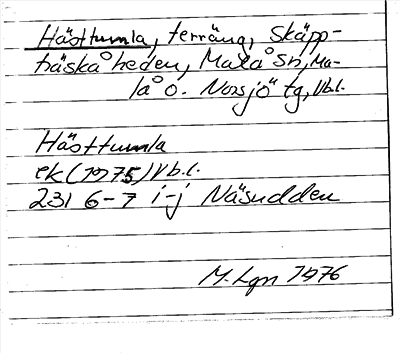 Hästtumla, terräng, Skäpp-
träskåheden, Malå sn, Ma-
lå o. Norsjö tg, Vbl.
Hästtumla
ek (1975) Vb.l.
231 6-7 i-j Näsudden
M. Lgn 1976